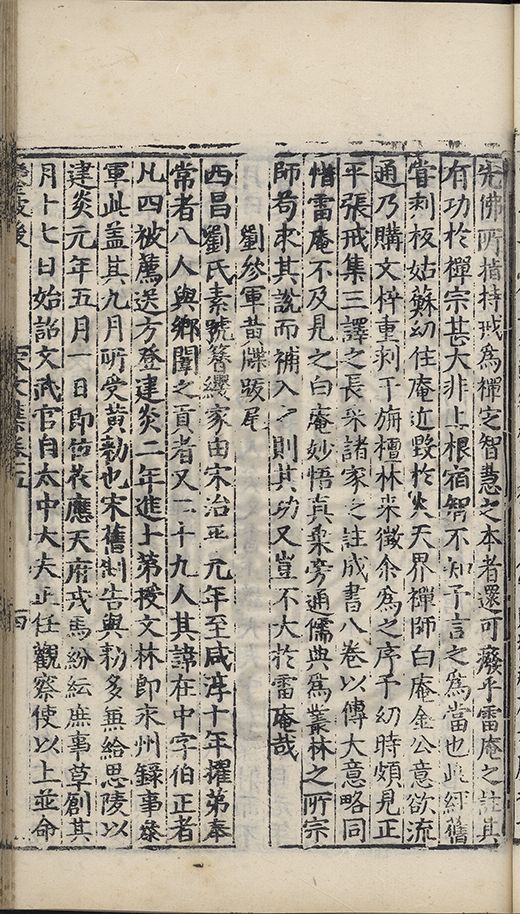 先佛所指持戒為禪定智慧之本者還可廢乎雷庵之註其
有功於禪宗甚大非上根宿智不知予言之為當也此經舊
嘗刺板姑蘇幻住庵近毀於火天界禪師白庵金公意欲流
通乃購文梓重刺于旃檀林来徵余為之序予幼時頗見正
平張戒集三譯之長采諸家之註成書八卷以傳大意略同
惜雷庵不及見之白庵妙悟真乘旁通儒典為叢林之所宗
師苟求其說而補入之則其功又豈不大於雷庵哉
劉參軍黄牒跋尾
西昌劉氏素號簪纓家由宋治平元年至咸淳十年擢第奉
常者八人與鄉闈之貢者又二十九人其諱在中字伯正者
凡四被薦送方登建炎二年進士第授文林郎来州錄事叅
軍此盖其九月所受黄勑也宋舊制告與勑多無給思陵以
建炎元年五月一日即位於應天府戎馬紛紜庶事草創其
月十七日始詔文武官自太中大夫正任觀察使以上並命
宋文集卷五
四